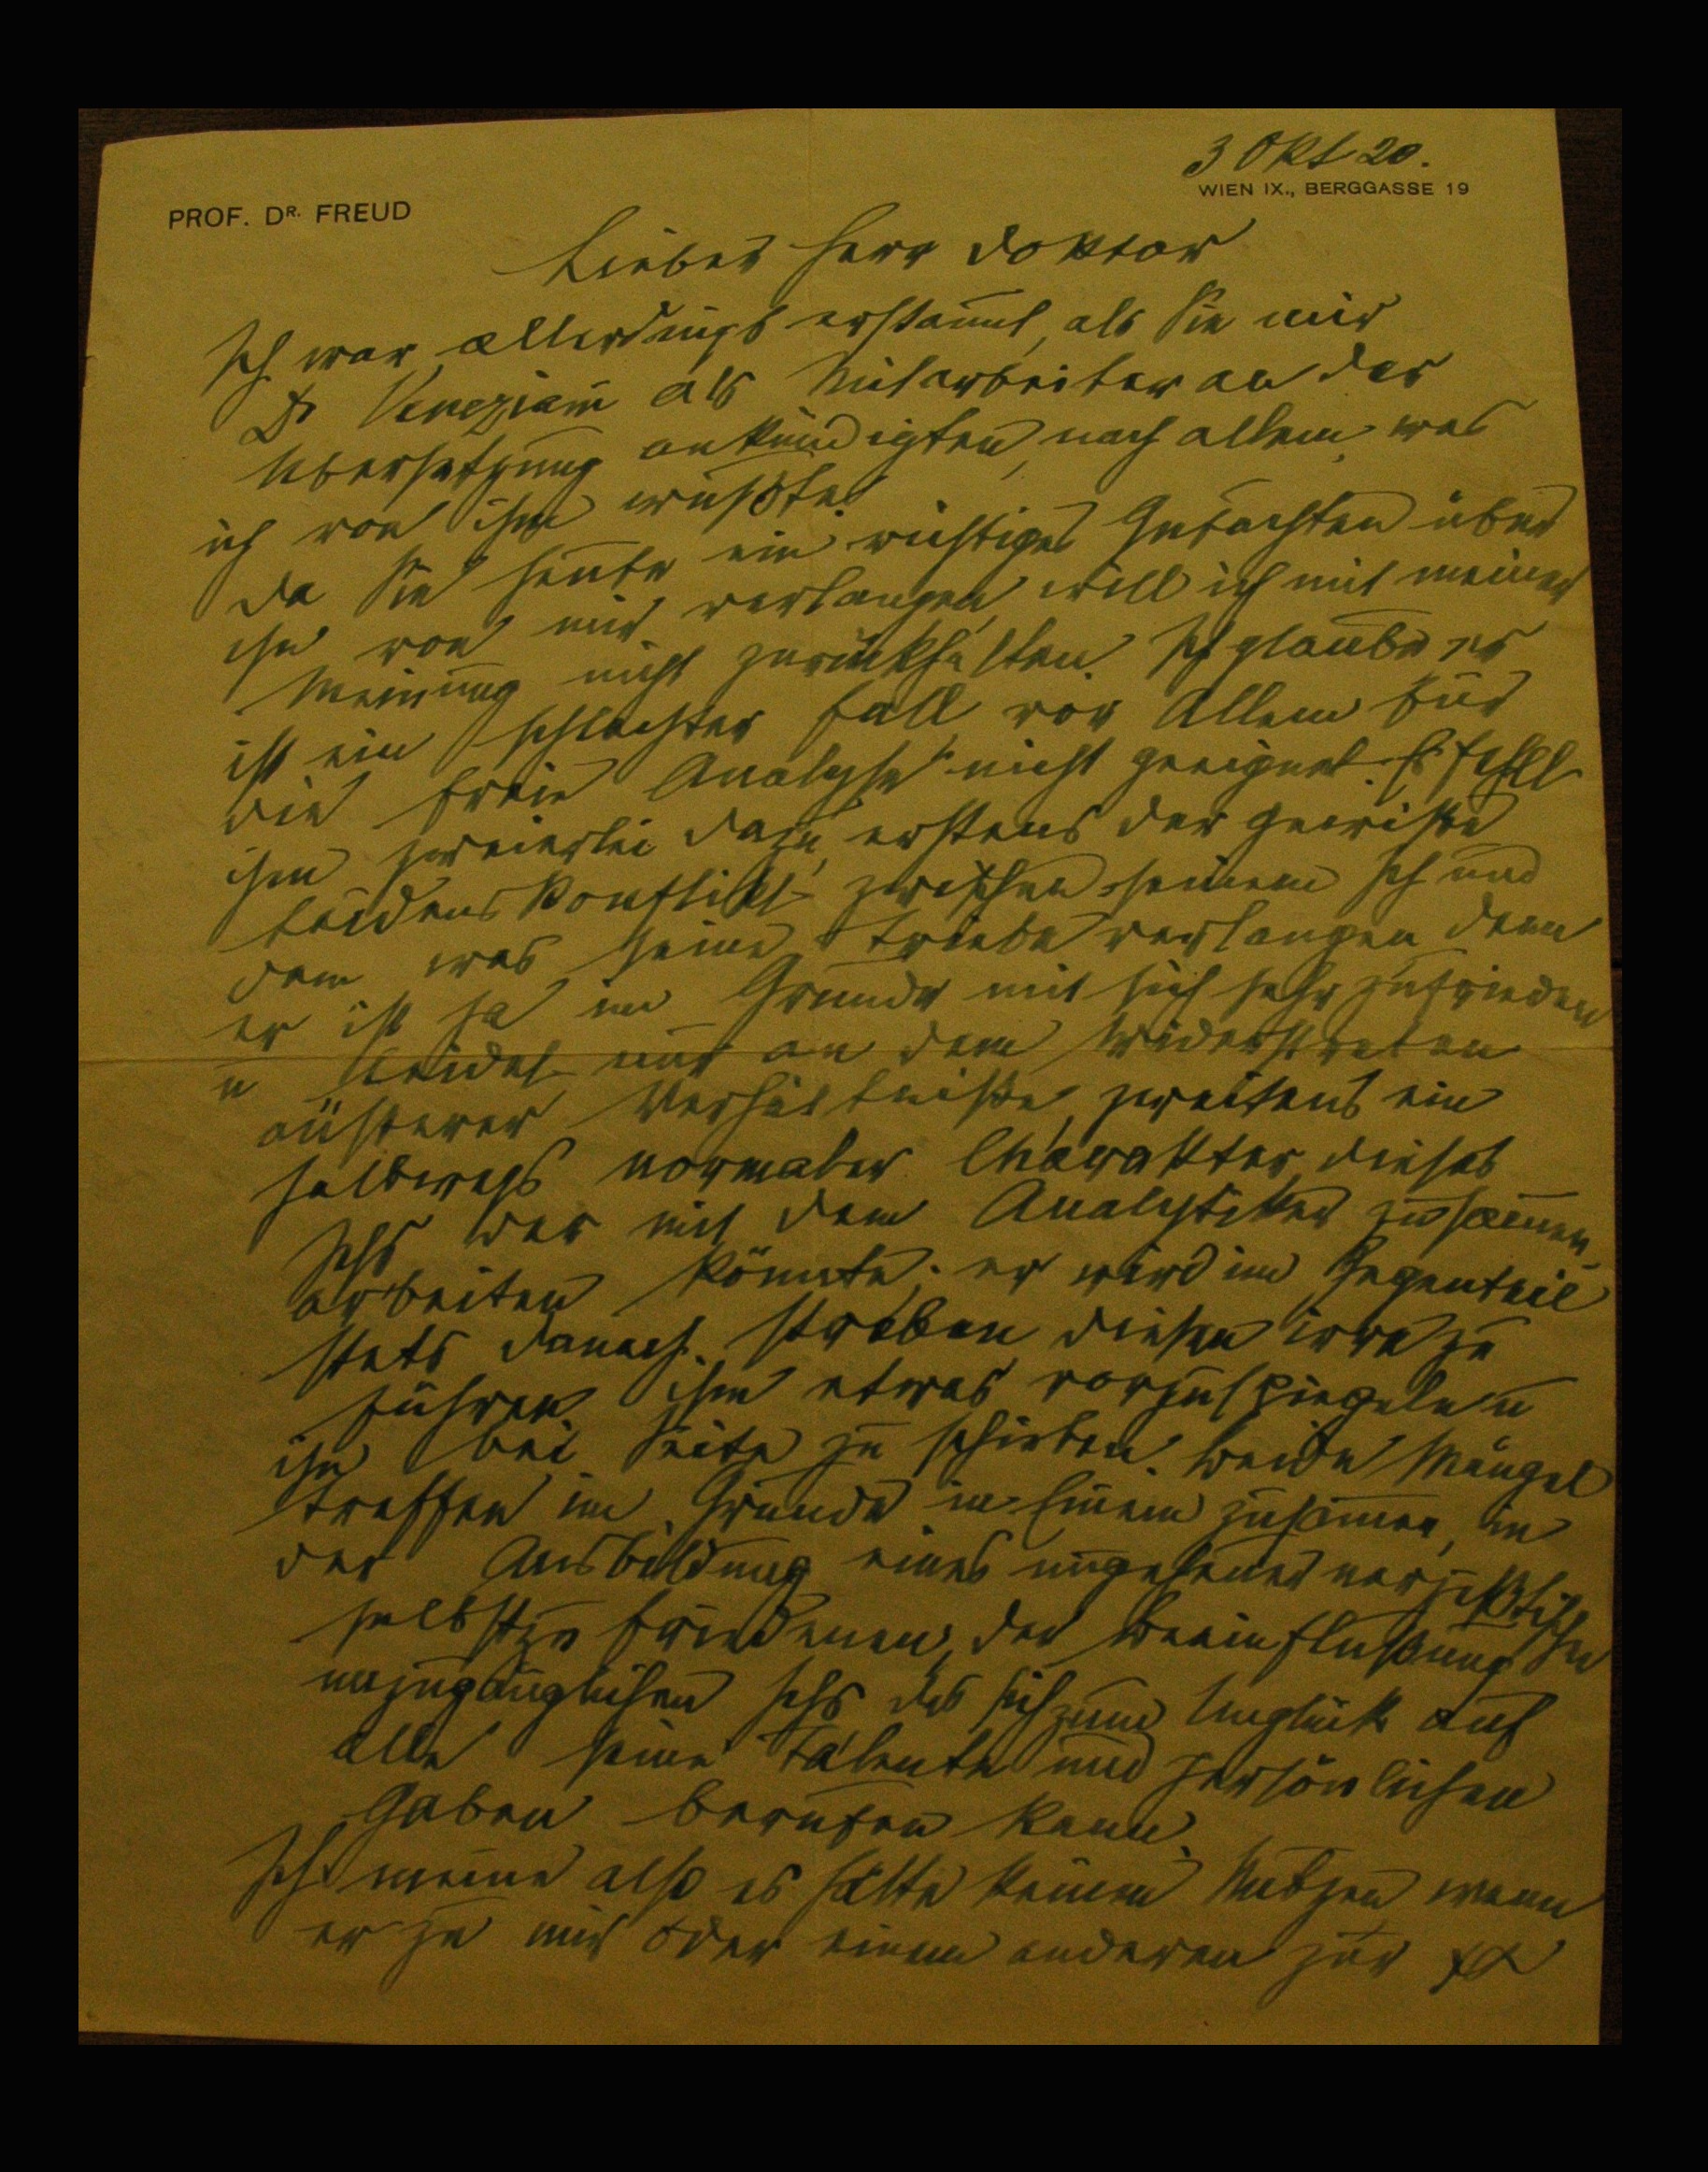 3 Okt 20.
WIEN IX., BERGGASSE 19
PROF. DR. FREUD
Lieber Herr Doktor
Ich war allerdings erstaunt, als Sie mir
Dr Veneziani als Mitarbeiter an der
Übersetzung ankündigten, nach allem, was
ich von ihm wußte.
Da Sie heute ein richtiges Gutachten über
ihn von mir verlangen, will ich mit meiner
Meinung nicht zurückhalten. Ich glaube es
ist ein schlechter Fall, vor Allem für
die freie Analyse nicht geeignet. Es fehlt
ihm zweierlei dazu, erstens der gewisse
Leidens Konflikt zwischen seinem Ich und
dem was seine Triebe verlangen denn
er ist ja im Grunde mit sich sehr zufrieden
u leidet nur an dem Widerstreben
äußerer Verhältniße, zweitens ein
halbwegs normaler Charakter dieses
Ichs der mit dem Analytiker zusammen
arbeiten könnte; er wird im Gegenteil
stets danach streben diesen irre zu
führen ihm etwas vorzuspiegeln u
ihn bei Seite zu schieben. Beide Mängel
treffen im Grunde in Einem zusammen, in
der Ausbildung eines ungeheuer narzißtischen
selbstzufriedenen, der Beeinflußung
unzugänglichen Ichs das sich zum Unglück auf
alle seine Talente und persönlichen
Gaben berufen kann.
Ich meine also es hätte keinen Nutzen wenn
er zu mir oder einem anderen zur